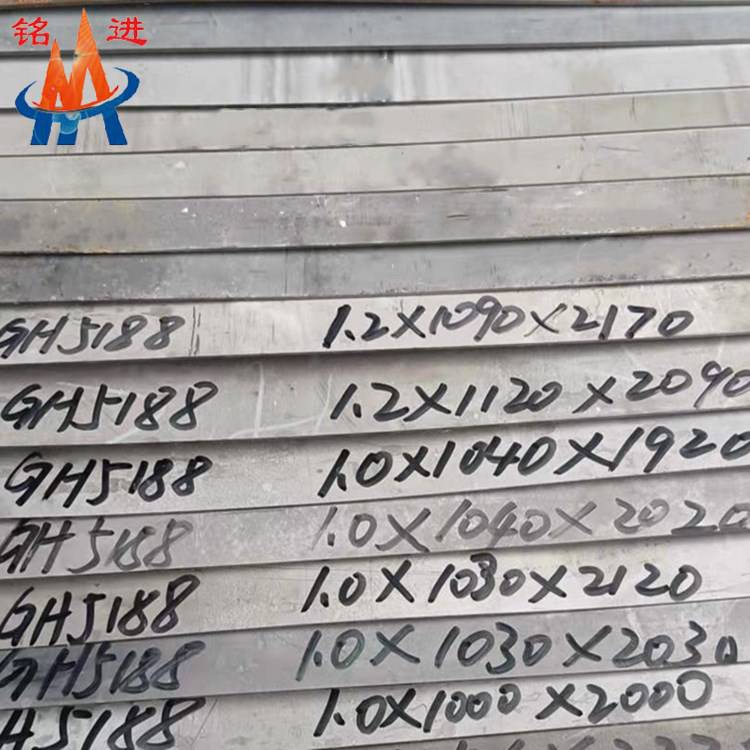 铭进
GH5188 1.2X1090X2170
GH5188 1.2X1120X2090
GH5188 1.0X1040X1920
GH5188 1.0X1040X2020
GH5188 1.0X1030X2120
GH5188 1.0X1030X2030
H5188 1.0X1000X2000